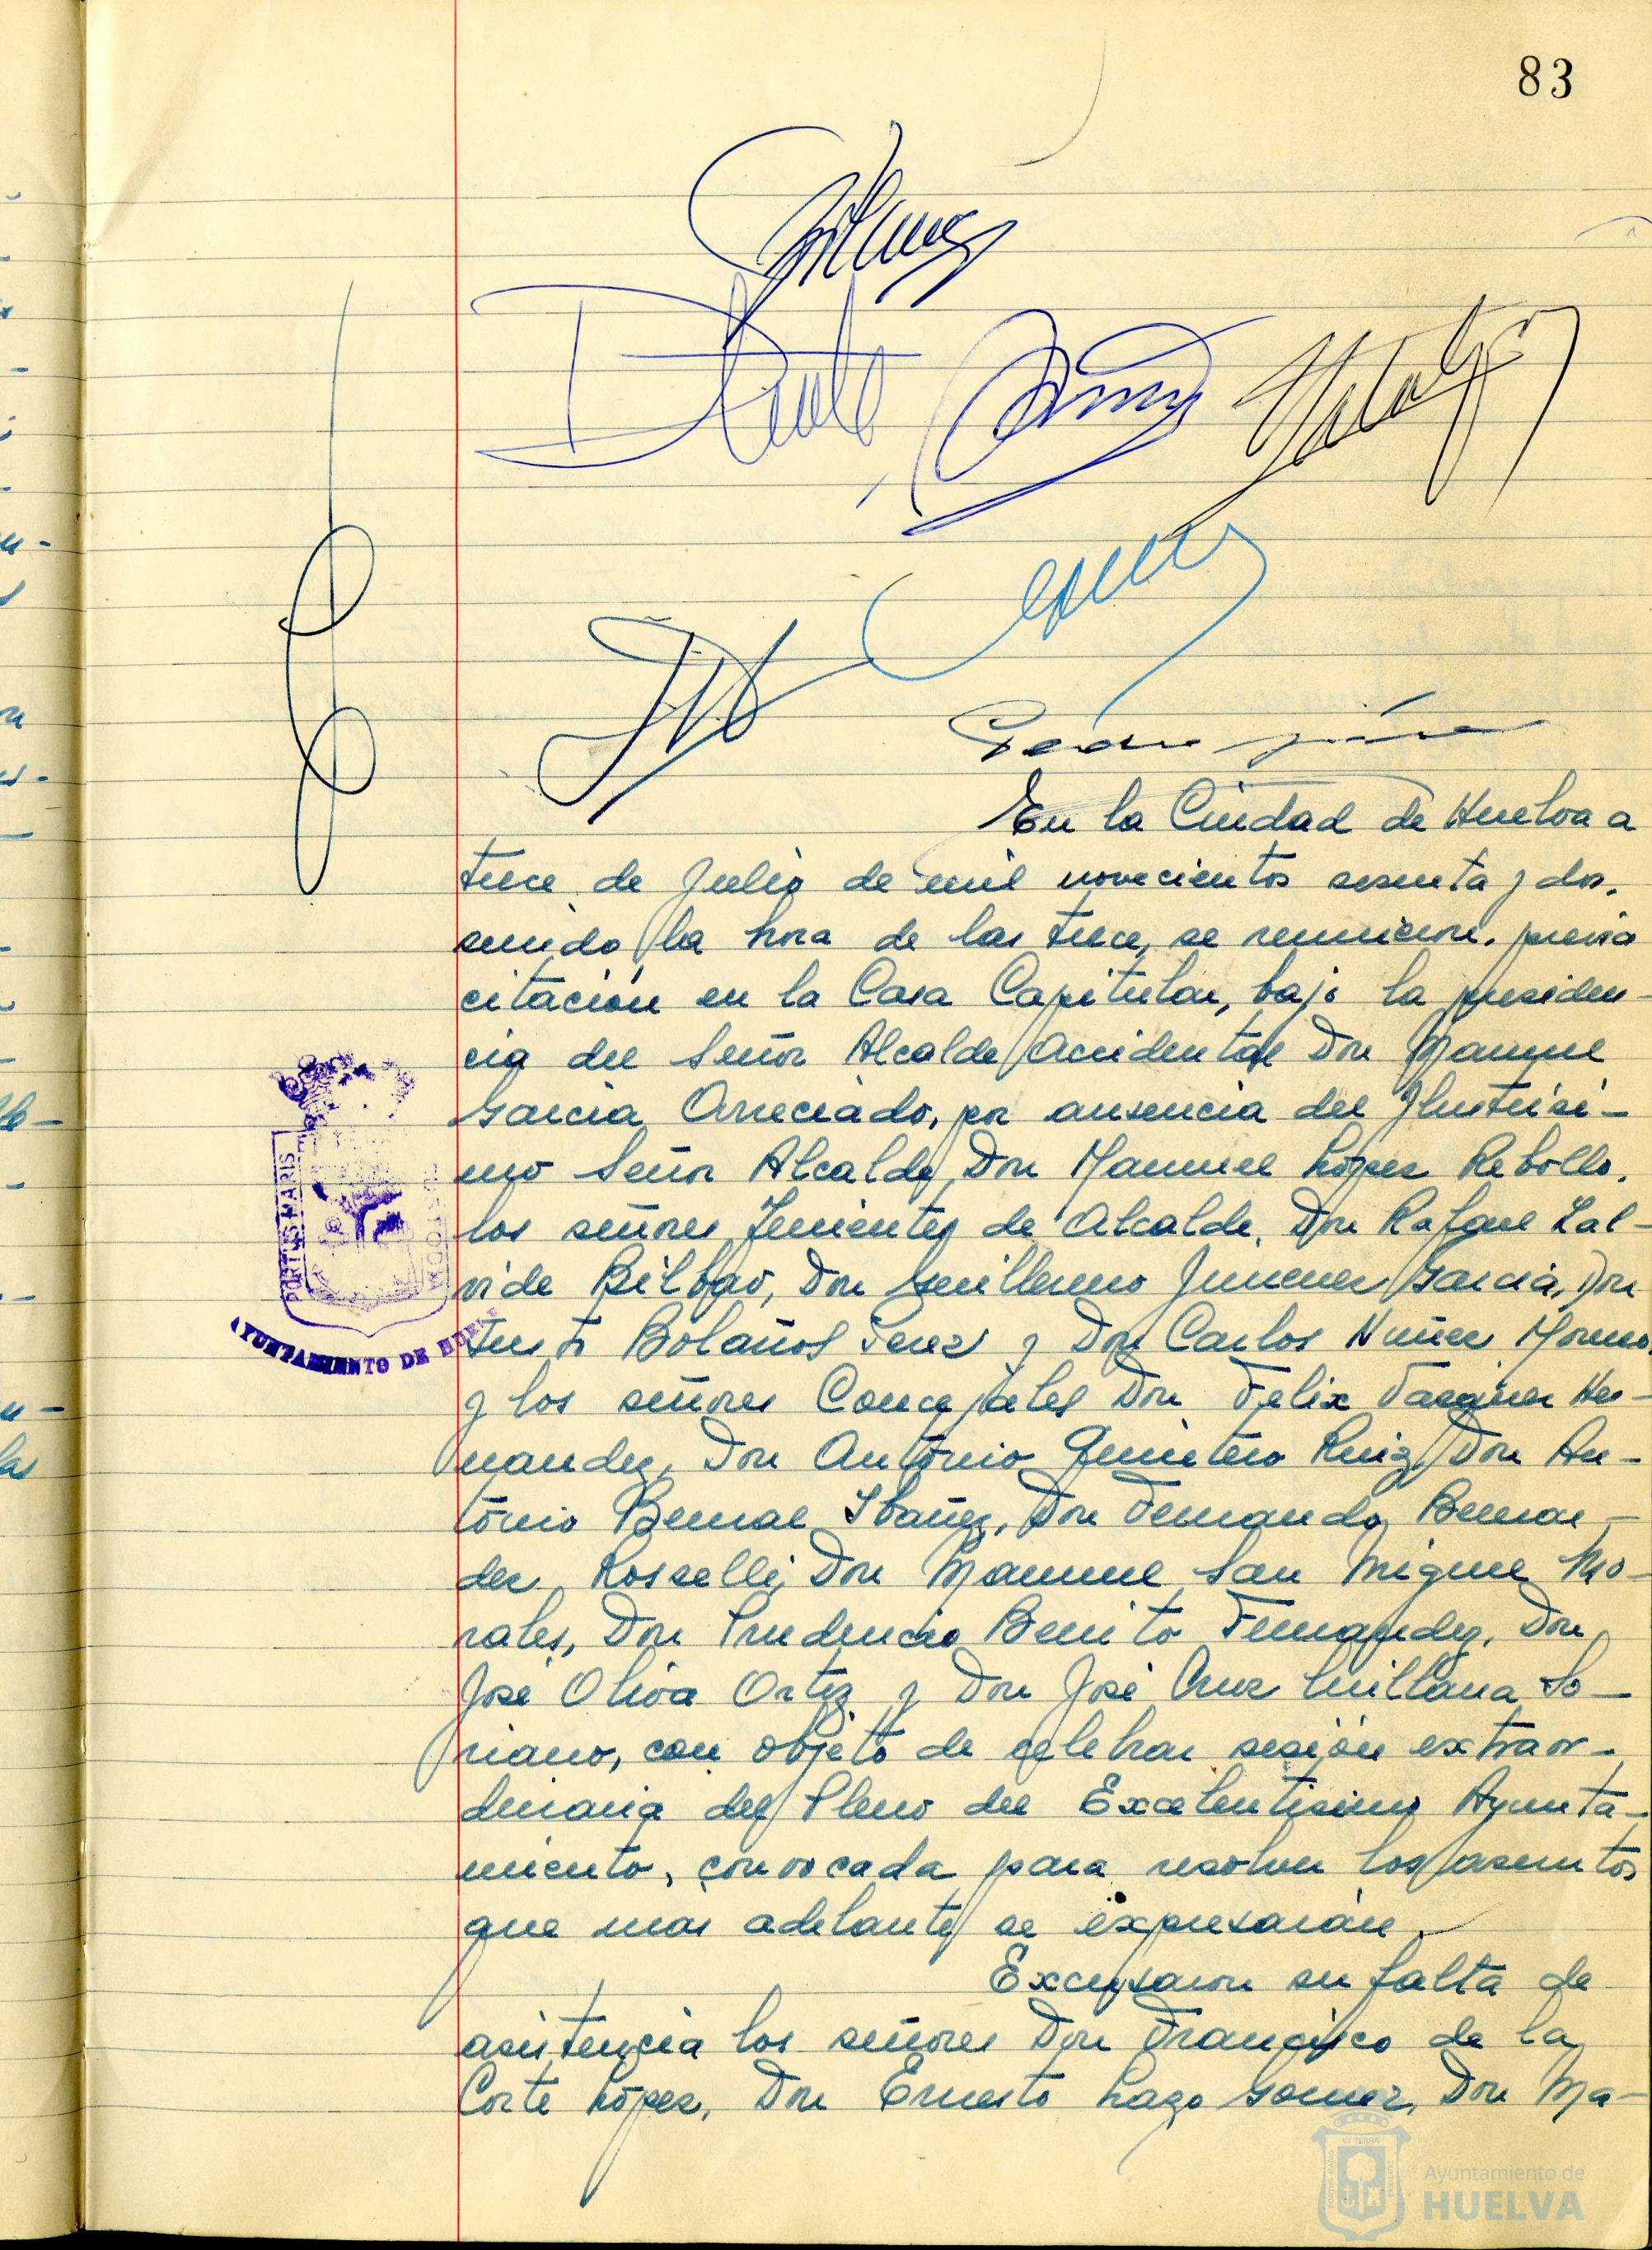 83
En la Ciudad de Huelva a
trece de Julio de mil novecientos sesenta y dos,
siendo la hora de las trece, se reunieron, previa
citación en la Casa Capitular, bajo la presiden-
cia del Señor Alcalde Accidental Don Manuel
Garcia Arreciado, por ausencia del Ilustrisi-
mo Señor Alcalde, Don Manuel López Rebollo,
los señores Tenientes de Alcalde, Don Rafael Zal-
vide Bilbao, Don Guillermo Jimenez Garcia, Don
Bolaños Perez y Don Carlos Nuñez Moreno,
y los señores Concejales Don Felix Vazquez Her-
nandez, Don Antonio Quintero Ruiz, Don An-
tonio Bernal Ibañez, Don Fernando Bernar-
dez Rosselli, Don Manuel San Miguel Mo-
rales, Don Prudencio Benito Fernandez, Don
José Oliva Ortiz y Don José Cruz Quillana So-
riano, con objeto de celebrar sesión extraor-
dinaria del Pleno del Excelentisimo Ayunta-
miento, convocada para resolver los asuntos
que mas adelante se expresarán.
Excusaron su falta de
asistencia los señores Don Francisco de la
Corte López, Don Ernesto Lazo Gomez, Don Ma-
PORTUS MARIS
AYUNTAMIENTO DE HUELVA
Ayuntamiento de
HUELVA